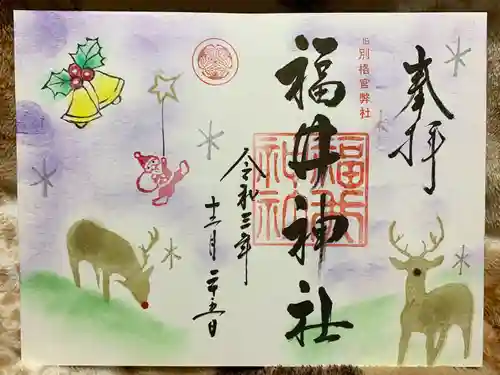 奉拝
旧別格官幣社
福井神社
令和三年
十二月二十五日